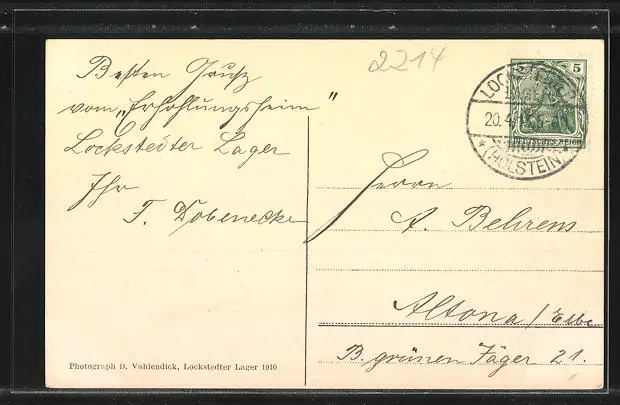 2214
Besten Gruß
vom „Erhohlungsheim"
Lockstedter Lager
Ihr
F. Dobenecker
Photograph D. Vahlendick, Lockstedter Lager 1910
5 5
DEUTSCHES REICH
20.4
* (HOLSTEIN) *
Herrn
A. Behrens
Altona / Elbe
B. grünen Jäger 21.